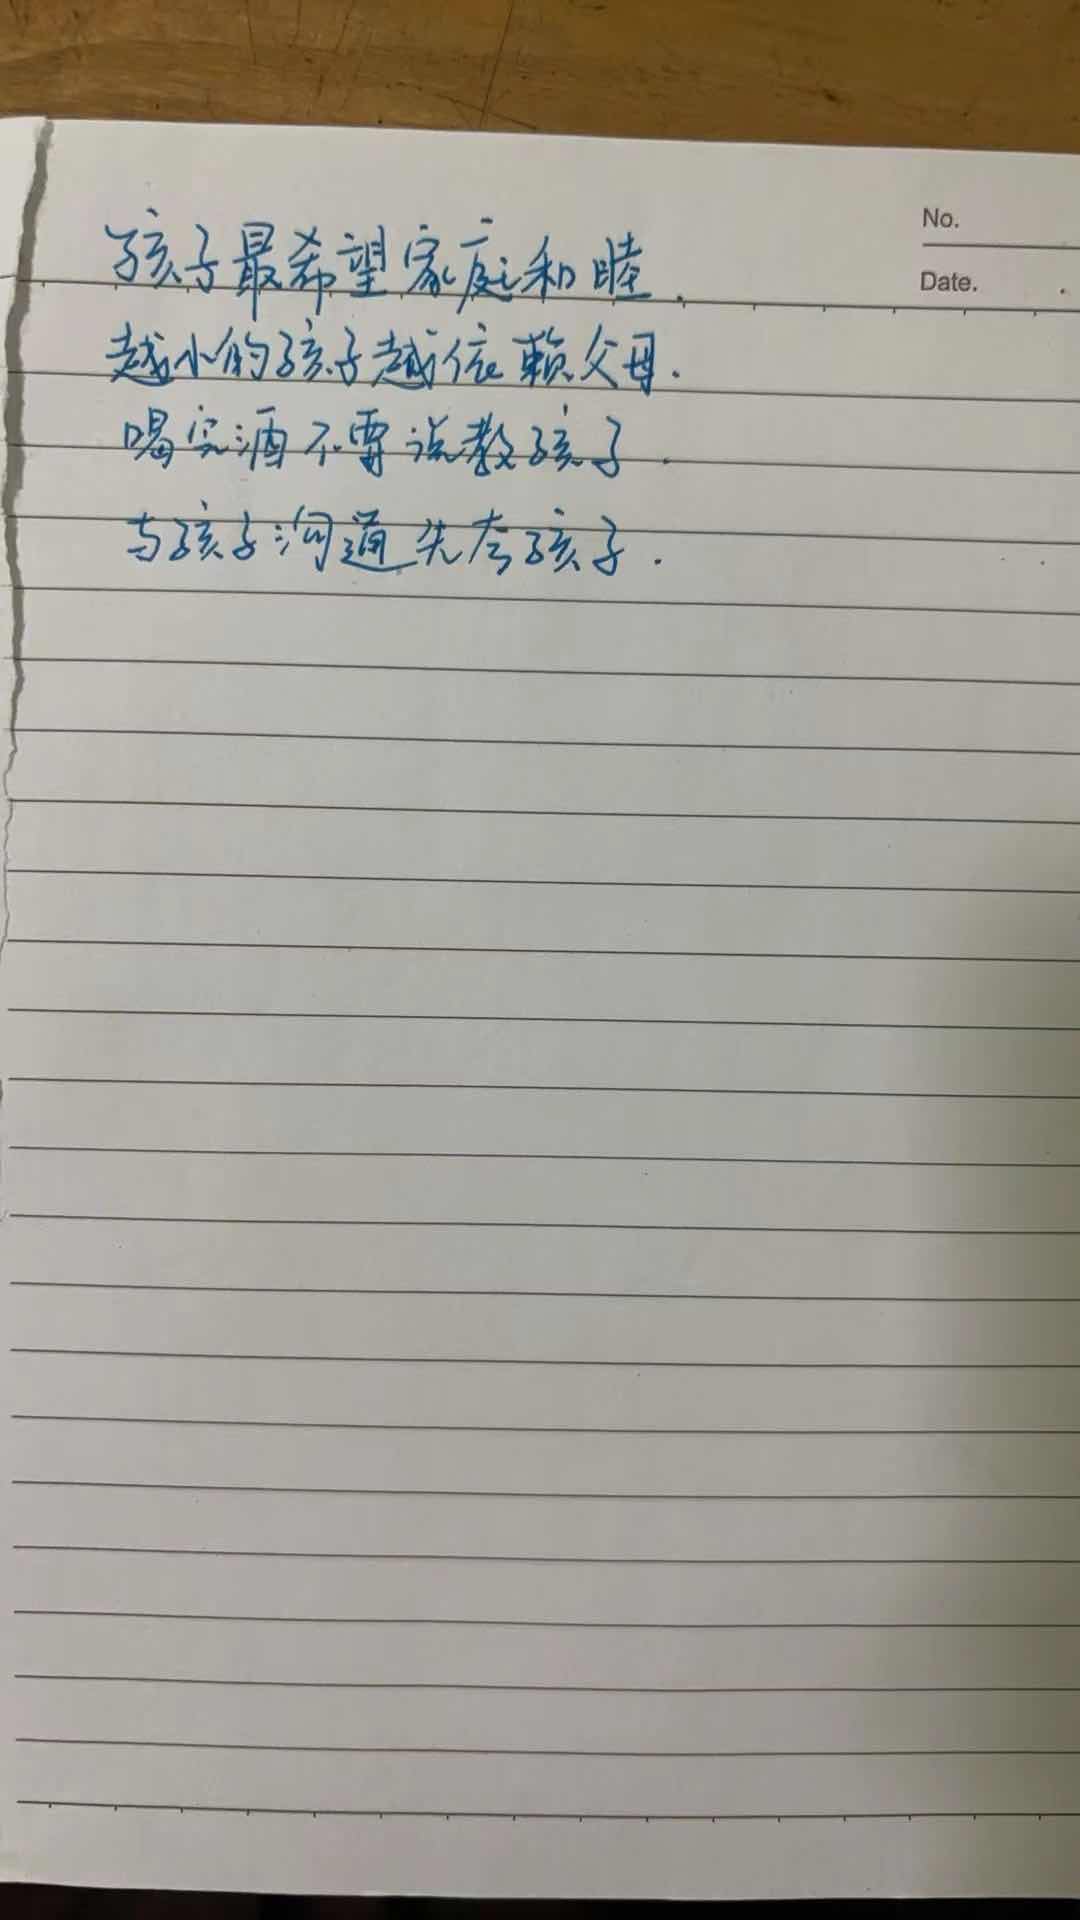 孩子最希望家庭和睦.
No.
Date.
越小的孩子越依赖父母.
喝完酒不要说教孩子.
与孩子沟通先夸孩子.